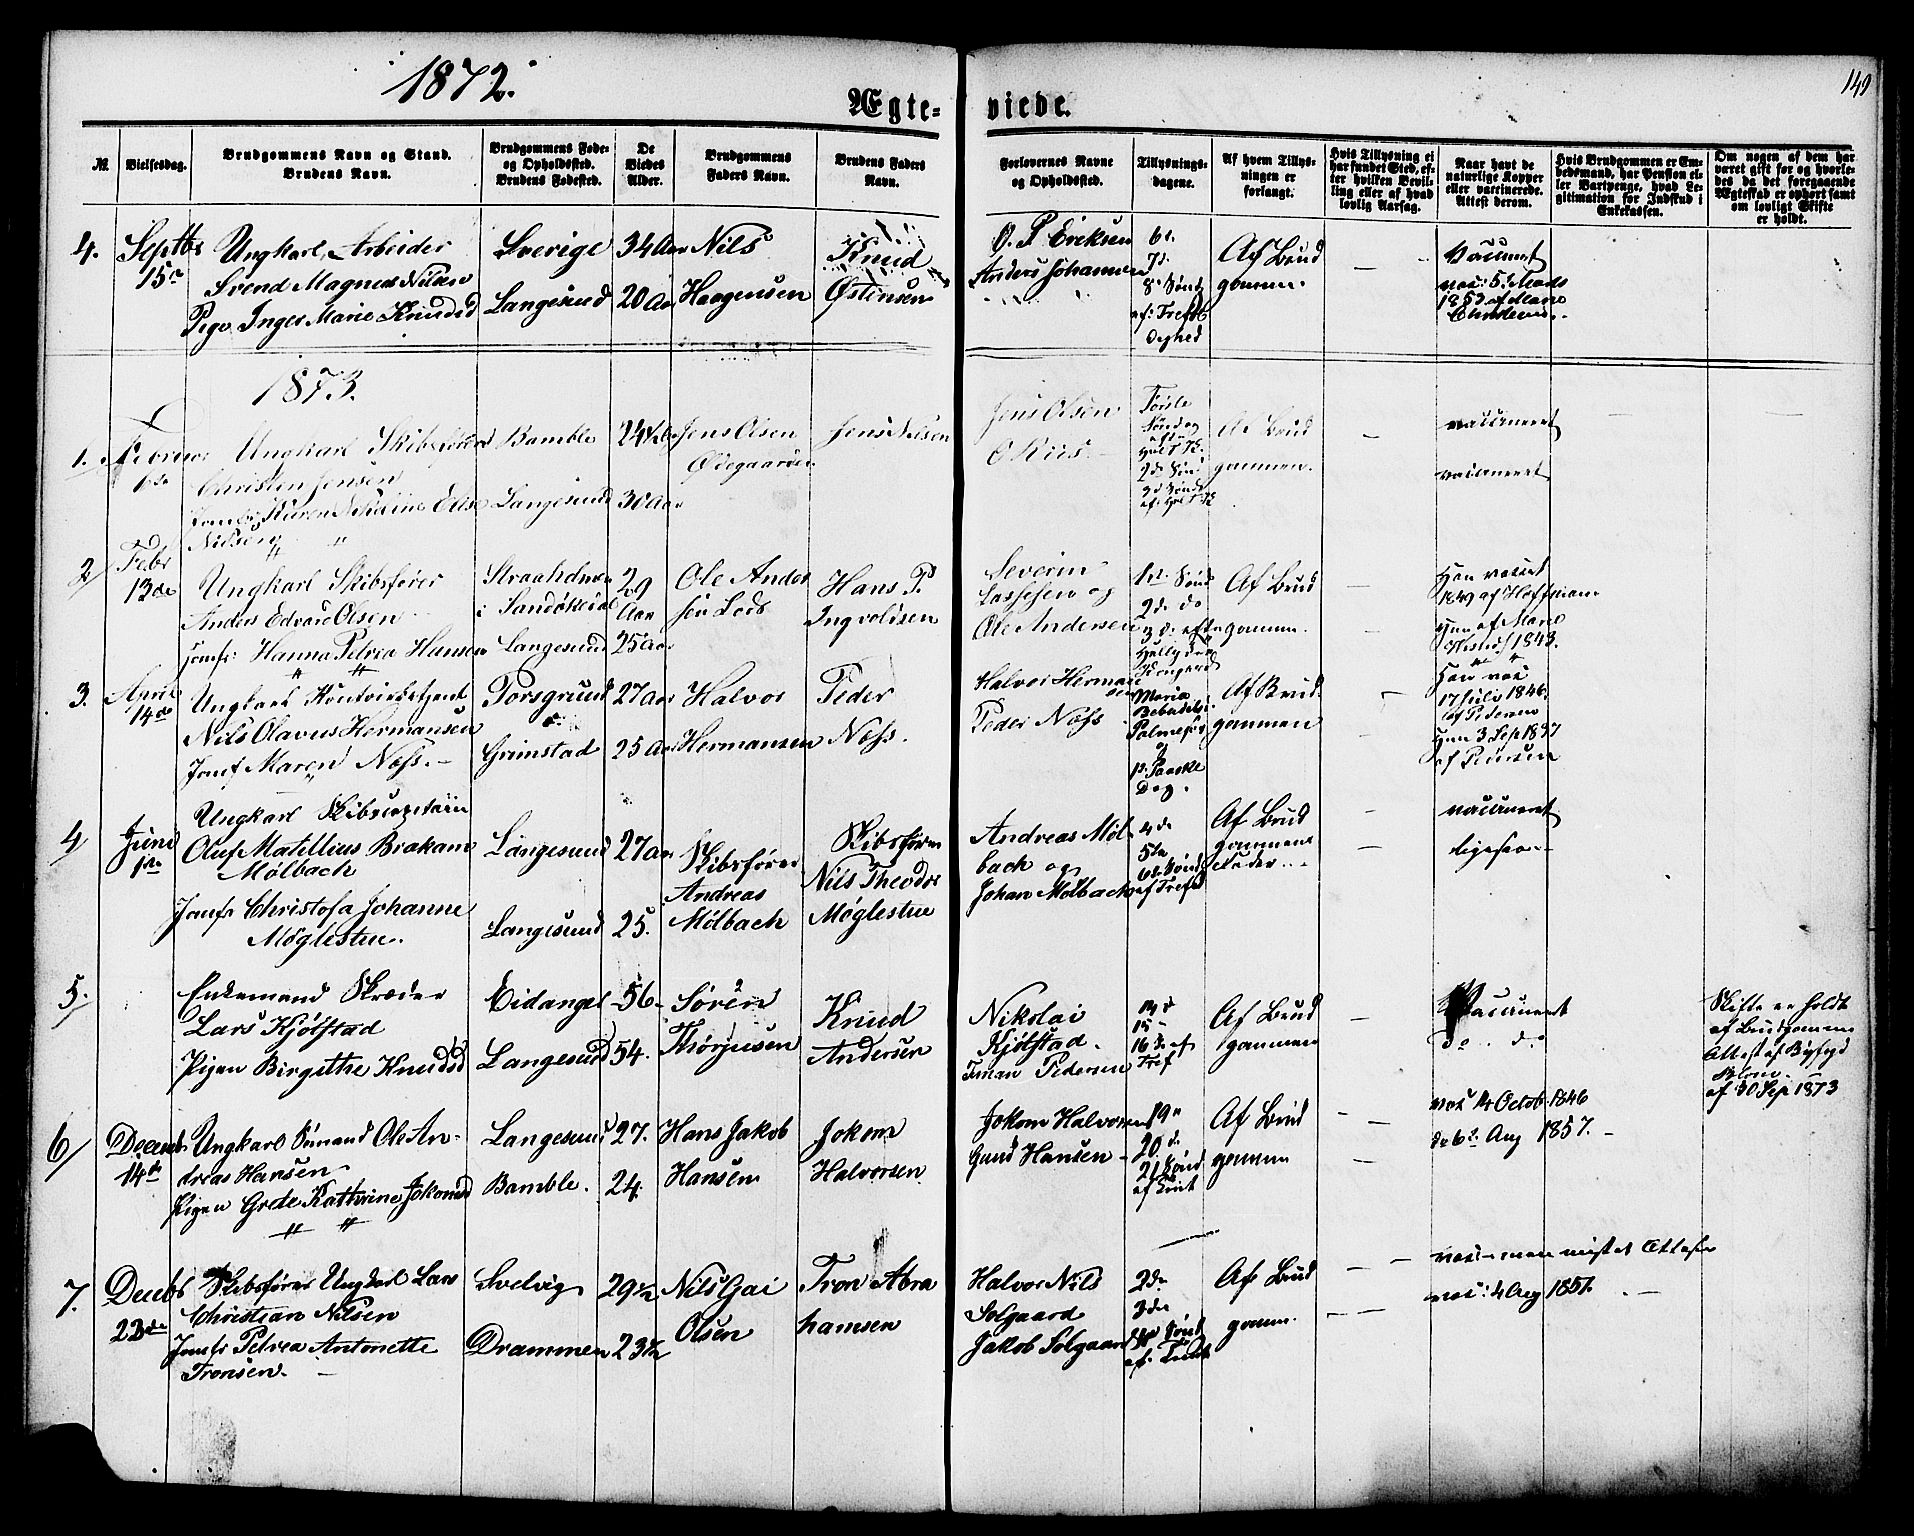 1872.
149
Ægte-
viede.
№
Vielsesdag.
Brudgommens Navn og Stand.
Brudens Navn.
Brudgommens Føde-
og Opholdssted.
Brudens Fødested.
De
Viedes
Alder.
Brudgommens
Faders Navn.
Brudens Faders
Navn.
Forlovernes Navne
og Opholdssted.
Tillysnings-
dagene.
Af hvem Tillys-
ningen er
forlangt.
Hvis Tillysning ei
har fundet Sted, ef-
ter hvilken Bevil-
ling eller af hvad
lovlig Aarsag.
Naar havt de
naturlige Kopper
eller vaccinerede.
Attest derom.
Hvis Brudgommen er Em-
bedsmand, har Pension el-
ler Vartpenge, hvad Le-
gitimation for Indskud i
Enkekassen.
Om nogen af dem har
været gift før og hvorle-
des da det foregaaende
Ægteskab er ophørt samt
om lovligt Skifte
er holdt.
4.
Septbr
15de
Ungkarl Arbeider
Svend Magnus Nilsen
Pige Inger Marie Knudsd
Sverige
Langesund
34 Aar
20 Aar
Nils
Haagensen
Knud
Østensen
O. P. Eriksen
Anders Johannesen
6te
7de
8de Sønd
af: Trefol
dighed
Af Brud
gommen.
Vaccineret
vac: 5. Mads
1853 af Marie
1873.
1.
Februar
6te
Ungkarl Skibsfører
Christen Jensen
Jomfr: Karen Nikoline Elise
Nielsen
Bamble
Langesund
24½
30 Aar
Jens Olsen
Ødegaarden
Jens Nilsen
Jens Olsen
O Riis.
Første
Søndag
2de Sønd
3d Sønd
Af Brud
gommen.
vaccineret
vaccineret
2/
Febr
13de
Ungkarl Skibsfører
Anders Edvard Olsen
Jomfr: Hanna Petrea Hansen
Straaholmen
i Sandøkedal
Langesund
29
Aar
25 Aar
Ole Ander
sen Lods
Hans P.
Ingvoldsen
Severin
Lassesen og
Ole Andersen
1ste Sønd
2de do
3d: efter
Hellig tre
Kongers
Af Brud
gommen.
Han vaccinet
1849 af Hoffman
Hun af Marie
1848.
3.
April
14de
Ungkarl
Nils Olavus Hermansen
Jomf Maren Næss. —
Porsgrund
Grimstad
27 Aar
25 Aar
Halvor
Hermansen
Peder
Næss.
Halvor Herman
sen
Peder Næss
Maria
Bebudelse
Palmesøn
og
1ste Paaske
Dag.
Af Brud.
gommen
Han vac
17 Juli 1846.
af Pedersen
Hun 3 Sep 1857
4/
Juni
1ste
Ungkarl Skibscapetain
Oluf Matillius Brakam
Mølbach
Jomfr Christofa Johanne
Møglestue.
Langesund
Langesund
27 Aar
25.
Skibsfører
Andreas
Mølbach
Skibsfører
Nils Theodor
Møglestue
Andreas Møl
bach og
Johan Mølbach
4de
5te
6te Sønd
af Trefd
Af Brud
gommens
Fader
vaccineret
ligesaa
5.
Enkemand Skræder
Lars Kjølstad
Pigen Birgithe Knudsd
Eidanger
Langesund
56
54.
Søren
Thorgusen
Knud
Andersen
Nikolai
Kjølstad.
Pedersen
14d
15
16de af
Tref
Af Brud
gommen
Vaccineret
do .. do
Skifte er holdt
af Brudgommen
Attest af Byfogd
Blom.
af 30 Sep 1873
6/
Decemb
14de
Ungkarl Sømand Ole An-
dreas Hansen
Pigen Grete Kathrine Jokomsd
Langesund
Bamble.
27.
24.
Hans Jakob
Hansen
Jokom
Halvorsen
Jokom Halvorsen
Gund Hansen
19de
20d.
21 Sønd
af Trint
Af Brud
gommen
vac 14 Octob 1846
do 6te Aug 1857. —
7.
Decbr
23de
Skibsfører Ungkarl Lars
Christian Nilsen
Jomfr Petrea Antonette
Tronsen.
Svelvig
Drammen
29½
23½
Nils Gai
Olsen
Tron Abra
hamsen
Halvor Nils
Solgaard
Jakob Solgaard
2de
3die
Sønd
Af Brud
gomm.
vac: men mistet Attesten
vac: 4 Aug 1851.